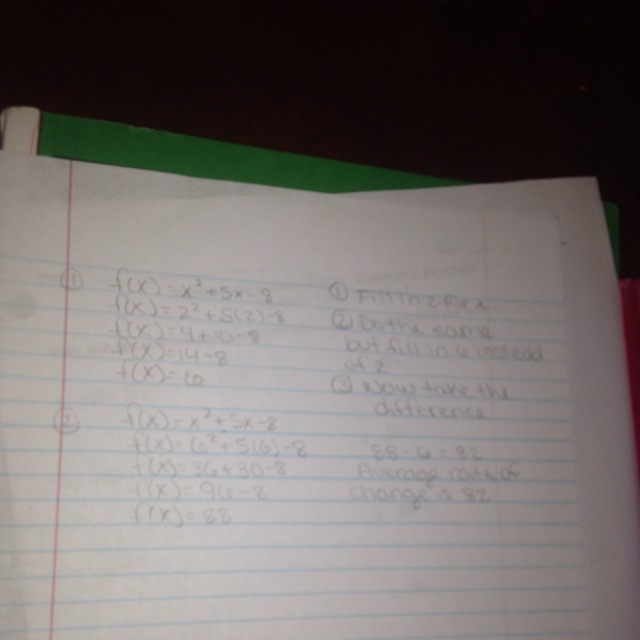 ① f(x)=x²+5x-8
f(x)=2²+5(2)-8
f(x)=4+10-8
f(x)=14-8
f(x)=6
② f(x)=x²+5x-8
f(x)=6²+5(6)-8
f(x)=36+30-8
f(x)=96-8
f(x)=88
① Fill in 2 for x
② Do the same
but fill in 6 instead
of 2
③ Now take the
difference
88-6=82
Average rate of
change is 82